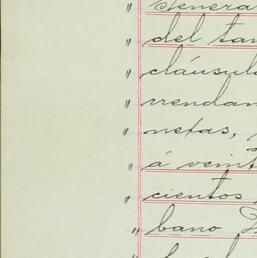 " genera
" del tan
" cláusula
" rrendan
" netas,
" á veint
" cientos
" bano